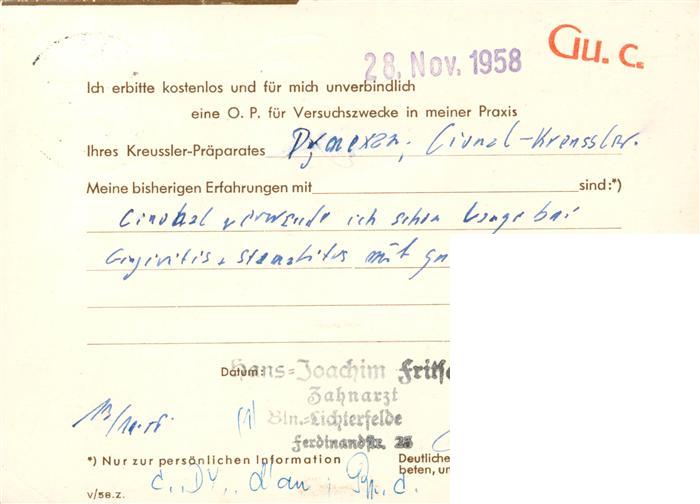 28. Nov. 1958
Ich erbitte kostenlos und für mich unverbindlich
eine O. P. für Versuchszwecke in meiner Praxis
Ihres Kreussler-Präparates Dynexan, Cional-Kreussler.
Meine bisherigen Erfahrungen mit sind:*)
verwende ich schon lange bei
Gingivitis + Stomatitis mit
Datum:
Hans-Joachim
Zahnarzt
Bln.-Lichterfelde
Ferdinandstr. 25
*) Nur zur persönlichen Information
Deutliche
beten, un
V/58.Z.